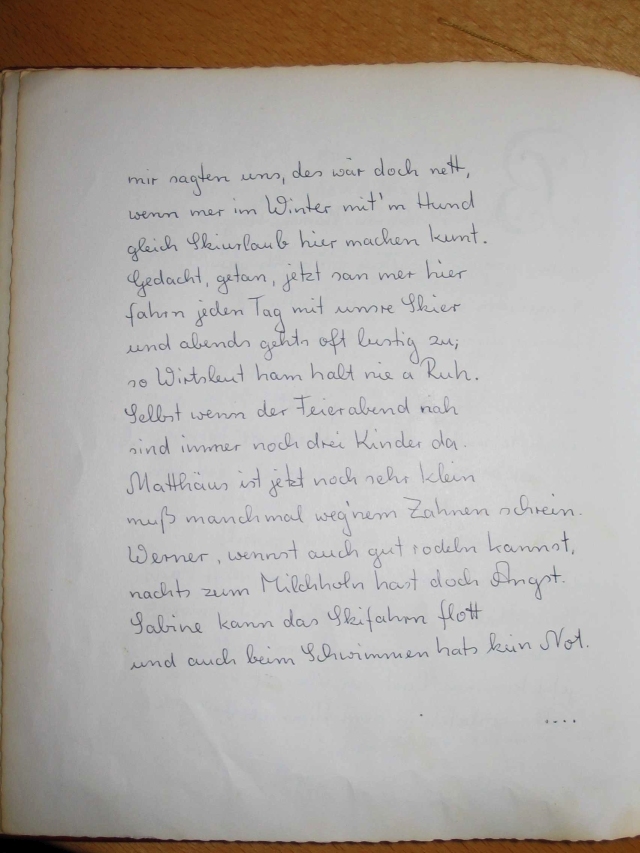 mir sagten uns, des wär doch nett,
wenn mer im Winter mit'm Hund
gleich Skiurlaub hier machen kunt.
Gedacht, getan, jetzt san mer hier
fahrn jeden Tag mit unsre Skier
und abends gehts oft lustig zu;
so Wirtsleut ham halt nie a Ruh.
Selbst wenn der Feierabend nah
sind immer noch drei Kinder da.
Matthäus ist jetzt noch sehr klein
muß manchmal weg'nem Zahnen schrein.
Werner, wennst auch gut rodeln kannst,
nachts zum Milchholn hast doch Angst.
Sabine kann das Skifahrn flott
und auch beim Schwimmen hats kein Not.
....